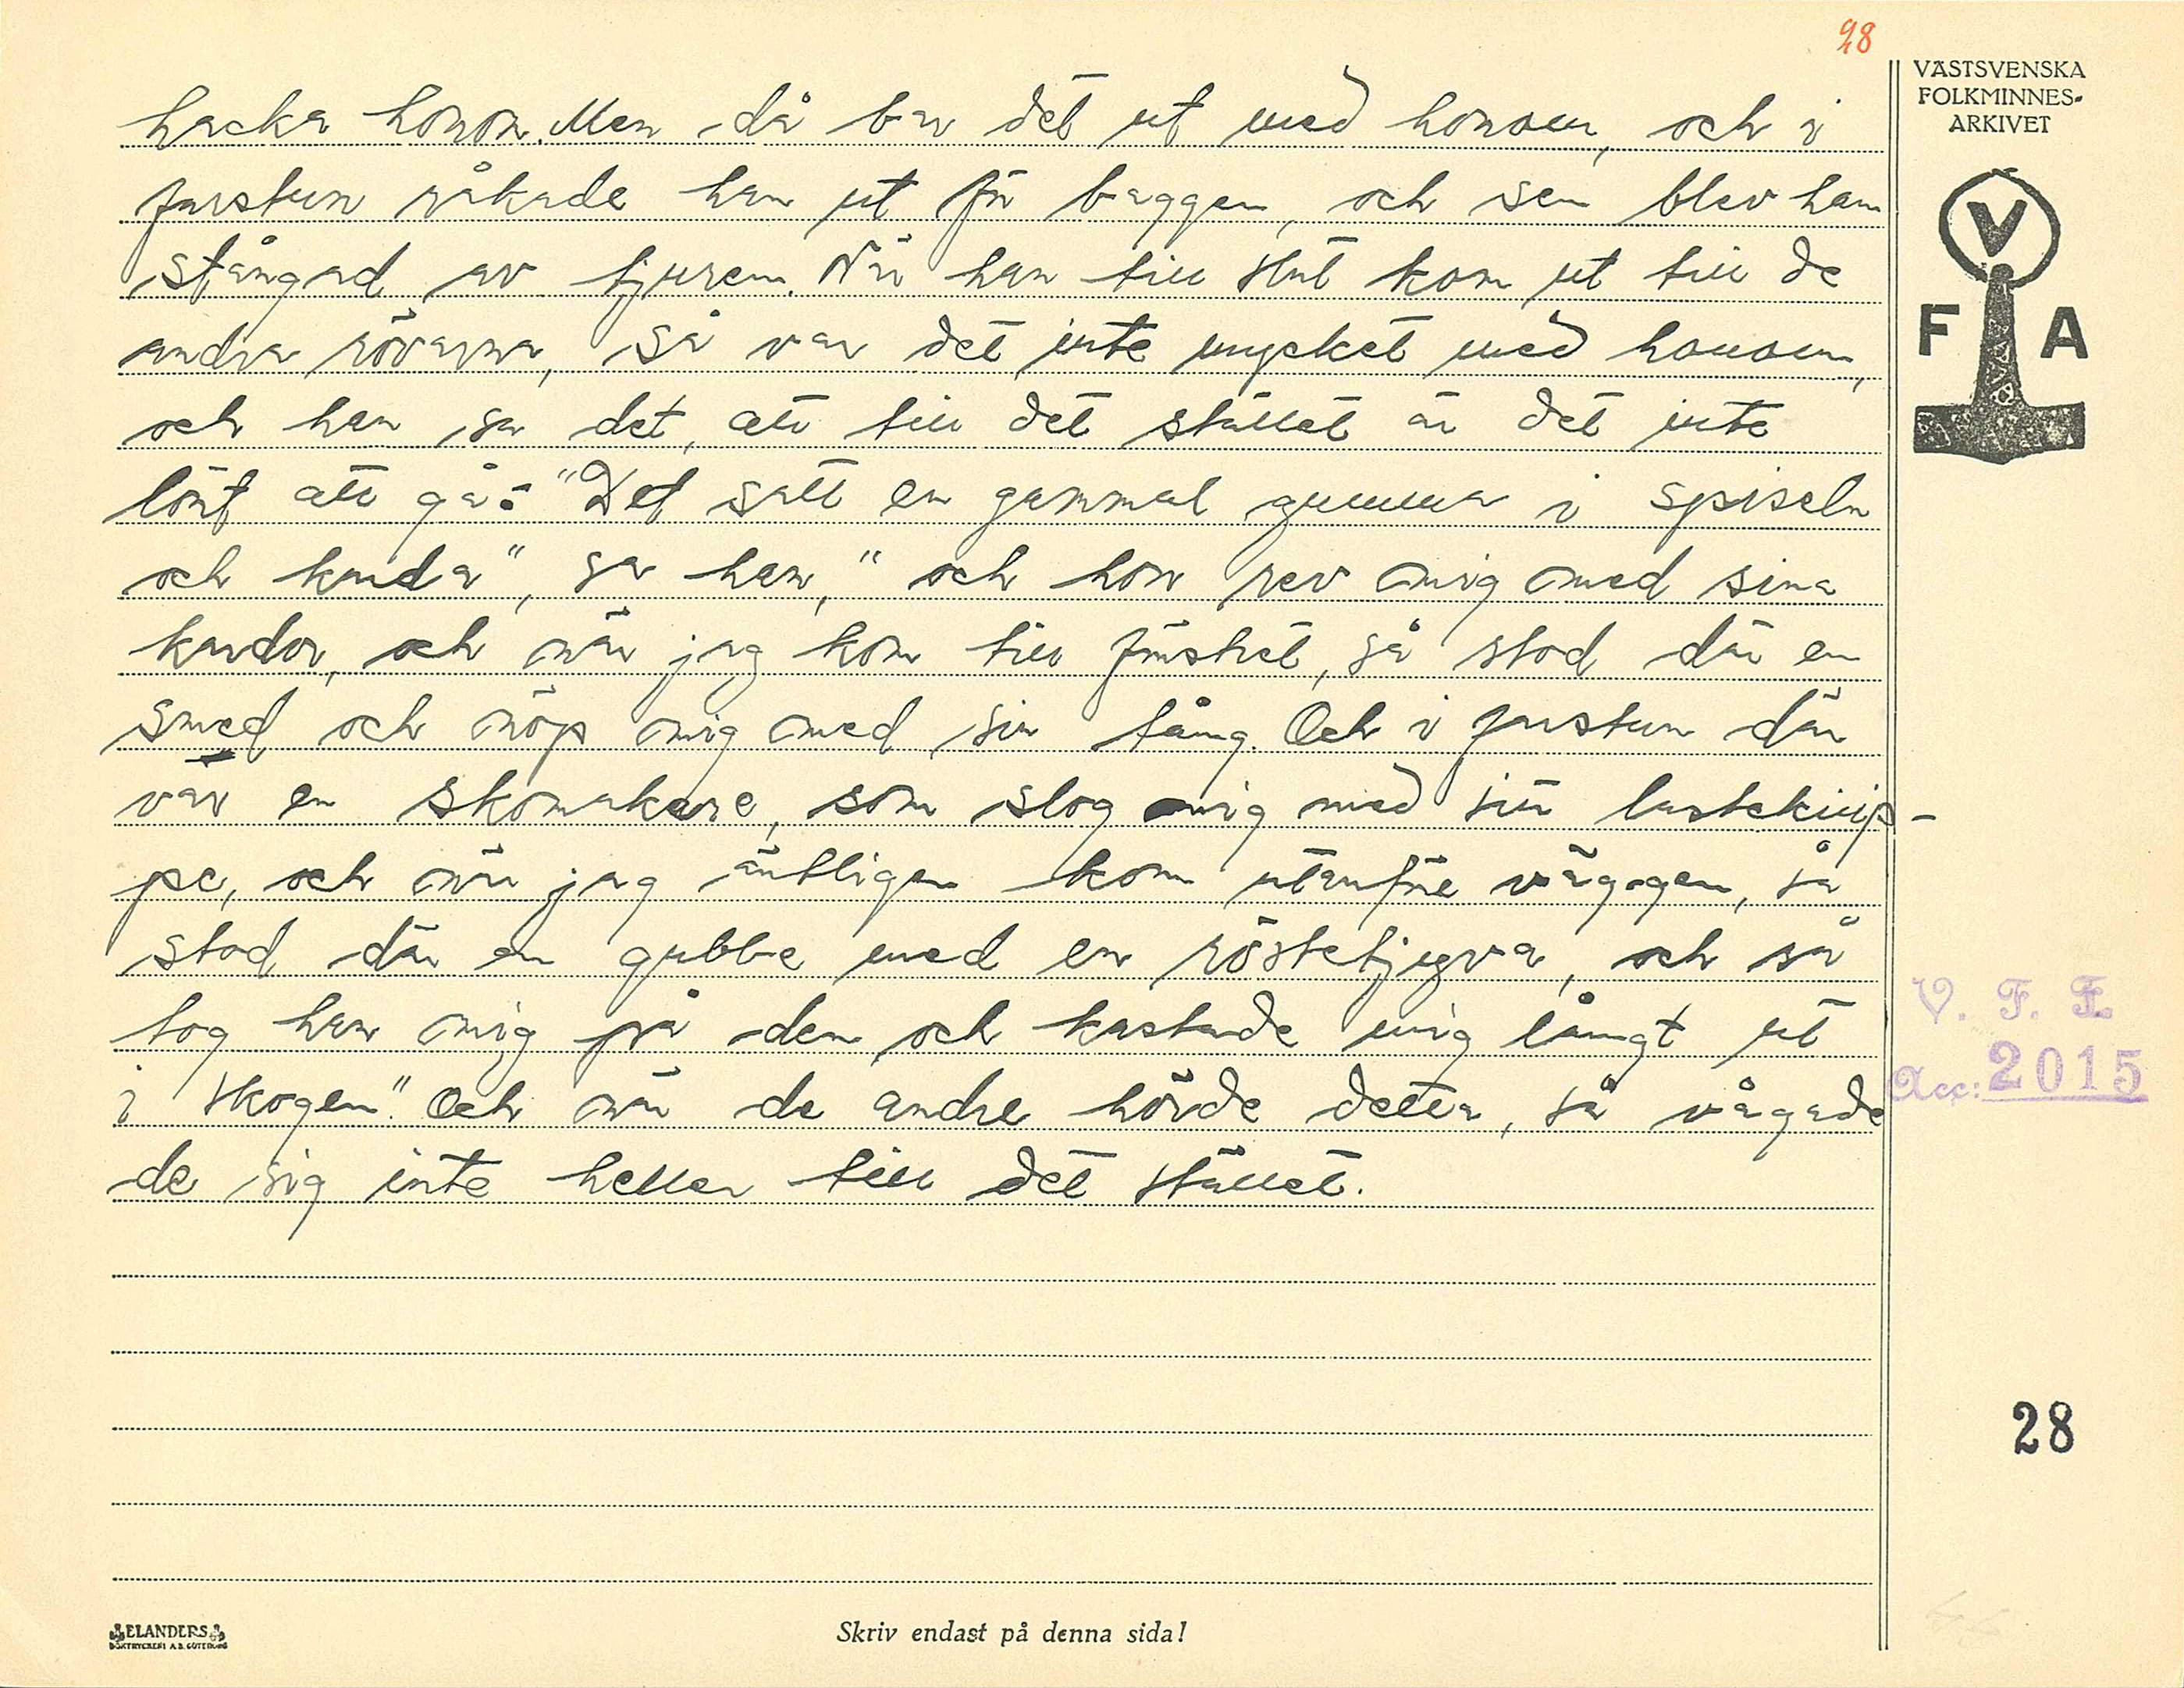 28
VÄSTSVENSKA
FOLKMINNES-
ARKIVET
V
F A
hacka honom. Men då bar det ut med honom, och i
farstun råkade han ut för baggen, och sen blev han
stångad av tjuren. När han till slut kom ut till de
andra rövarna, så var det inte mycket med honom,
och han sa det, att till det stället är det inte
lönt att gå: "Det satt en gammal gumma i spiseln
och karda", sa han, "och hon rev mig med sina
kardor, och när jag kom till fönstret, så stod där en
smed och nöp mig med sin tång. Och i farstun där
var en skomakare, som slog mig med sin lästeknip-
pe, och när jag äntligen kom utanför väggen, så
stod där en gubbe med en röstetjygva, och så
tog han mig på den och kastade mig långt ut
i skogen". Och när de andre hörde detta, så vågade
de sig inte heller till det stället.
V. F. F.
Acc: 2015
28
ELANDERS
BOKTRYCKERI A.B. GÖTEBORG
Skriv endast på denna sida!